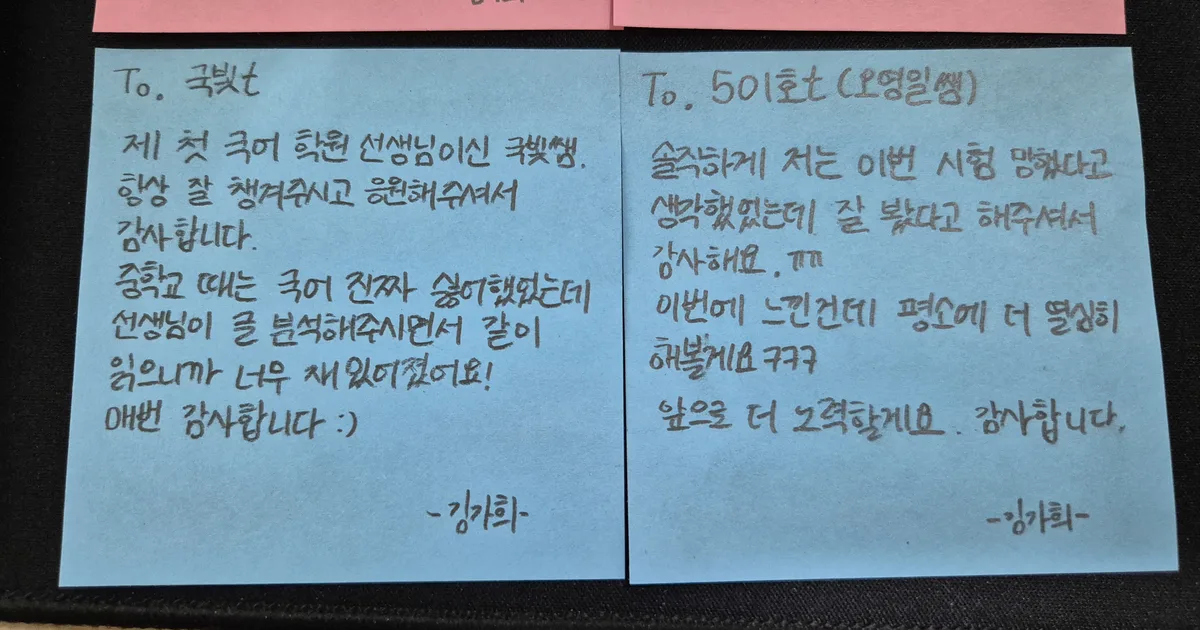 To. 국빛t
제 첫 국어 학원 선생님이신 국빛쌤.
항상 잘 챙겨주시고 응원해주셔서
감사합니다.
중학교 때는 국어 진짜 싫어했었는데
선생님이 글 분석해주시면서 같이
읽으니까 너무 재있어졌어요!
매번 감사합니다 :)
-김가희-
To. 501호t (오영일쌤)
솔직하게 저는 이번 시험 망했다고
생각했었는데 잘 봤다고 해주셔서
감사해요. ㅠㅠ
이번에 느낀건데 평소에 더 열심히
해볼게요ㅋㅋㅋ
앞으로 더 노력할게요. 감사합니다.
-김가희-